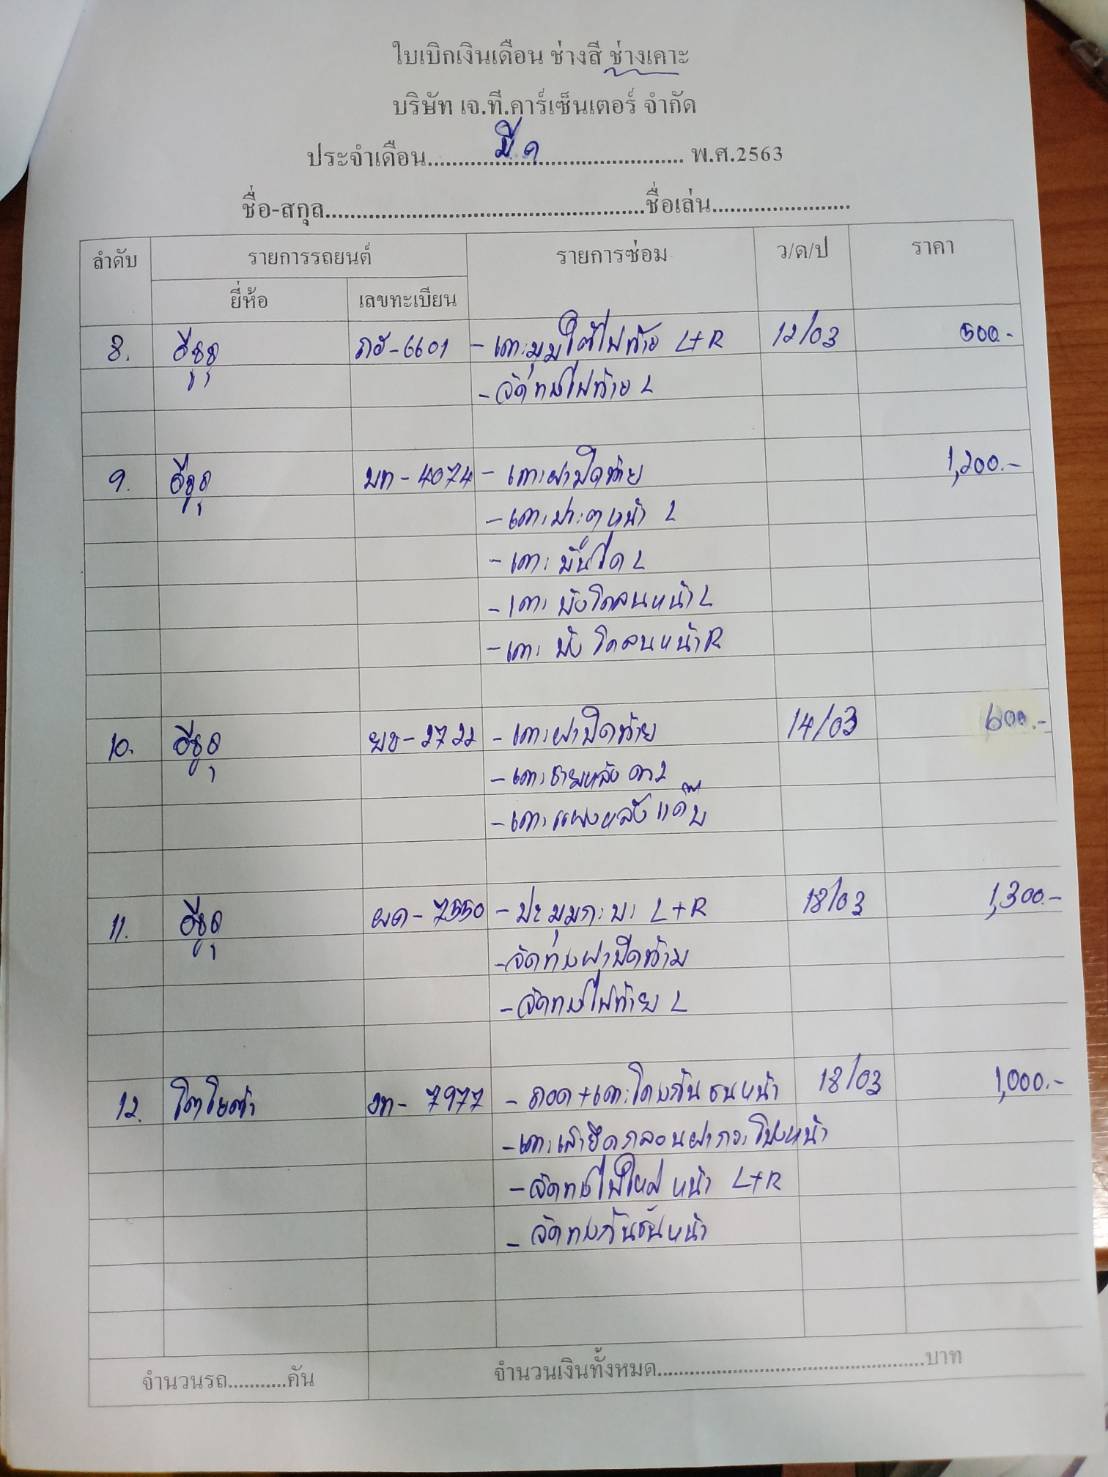 ใบเบิกเงินเดือน ช่างสี ช่างเคาะ
บริษัท เจ.ที.คาร์เซ็นเตอร์ จำกัด
ประจำเดือน มีค พ.ศ.2563
ชื่อ-สกุล ชื่อเล่น
ลำดับ รายการรถยนต์ รายการซ่อม ว/ด/ป ราคา
ยี่ห้อ เลขทะเบียน
8. อีซูซุ -6601 - เคาะมุมใต้ไฟท้าย L+R 12/03 500.-
- จัดทรงไฟท้าย L
9. อีซูซุ บท-4074 - เคาะฝาปิดท้าย 1,200.-
- เคาะประตูหน้า L
- เคาะบันได L
- เคาะบังโคลนหน้า L
- เคาะบังโคลนหน้า R
10. อีซูซุ -2722 - เคาะฝาปิดท้าย 14/03 600.-
- เคาะชายหลังคา L
- เคาะแผงหลังแค็บ
11. อีซูซุ ผด-7550 - ปะมุมกะบะ L+R 18/03 1,300.-
- จัดทรงฝาปิดท้าย
- จัดทรงไฟท้าย L
12. โตโยต้า -7977 - ถอด+เคาะโครงกันชนหน้า 18/03 1,000.-
- เคาะเสายึดกลอนฝากระโปรงหน้า
- จัดทรงไฟใหญ่หน้า L+R
- จัดทรงกันชนหน้า
จำนวนรถ คัน จำนวนเงินทั้งหมด บาท